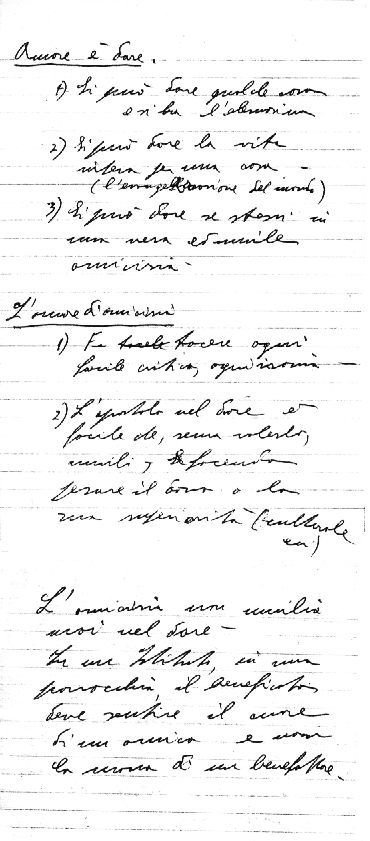 Amore è dare.
1) Si può dare qualche cosa
es: la l'elemosina
2) Si può dare la vita
intera per una cosa -
(l'evangelizzazione del mondo)
3) Si può dare se stessi in
una vera ed umile
amicizia -
L'amore di amicizia
1) Fa tacere ogni
facile critica, ogni ironia -
2) L'apostolo nel dare è
facile che, senza volerlo,
umili, facendo
pesare il dono o la
sua superiorità (culturale
ecc)
L'amicizia non umilia
mai nel dare -
In un Istituto, in una
parrocchia, il beneficato
deve sentire il cuore
di un amico e non
la mano di un benefattore.